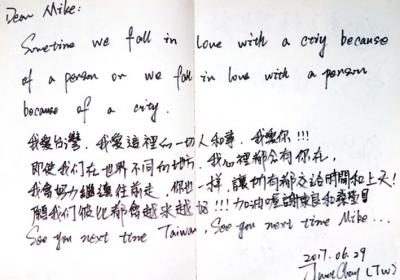 Dear Mike:
Sometime we fall in love with a city because
of a person or we fall in love with a person
because of a city.
我愛台灣，我愛這裡的一切人和事，我愛你!!!
即使我们在世界不同的地方，我心裡都会有你在，
我會努力繼續往前走，你也一样，讓所有都交給時間和上天!
願我们彼此都會越來越好!!! 加油喔謝東良和桑
See you next time Taiwan, See you next time Mike...
2017.06.29
(TW)